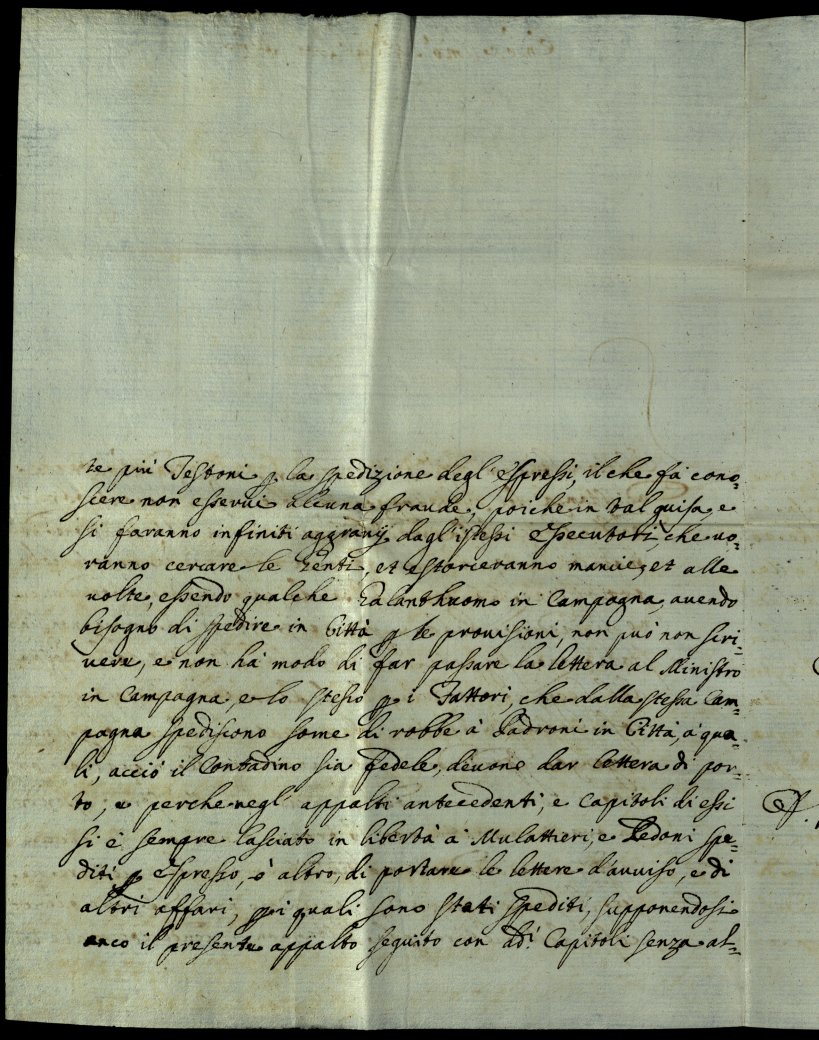 te più Testoni p la spedizione degl'espressi, il che fà cono=
scere non esservi alcuna fraude, poiche in tal guisa, e
si faranno infiniti aggravij dagl'istessi essecutori, che vo=
ranno cercare le genti, et estorceranno mancie, et alle
volte, essendo qualche Galanthuomo in Campagna, avendo
bisogno di spedire in Città p le provisioni, non può non scri=
vere, e non hà modo di far passare la lettera al Ministro
in Campagna, e lo stesso p i Fattori, che dalla stessa Cam=
pagna spediscono some di robbe à Padroni in Città, à qua=
li, acciò il Contadino sia fedele, devono dar lettera di por=
to, e perche negl'appalti antecedenti, e capitoli di essi
si è sempre lasciato in libertà à Mulattieri, e Pedoni spe=
diti p espresso, ò altro, di portare le lettere d'avviso, e di
altri affari, p i quali sono stati spediti, supponendosi
anco il presente appalto seguito con dd.i Capitoli senza al=